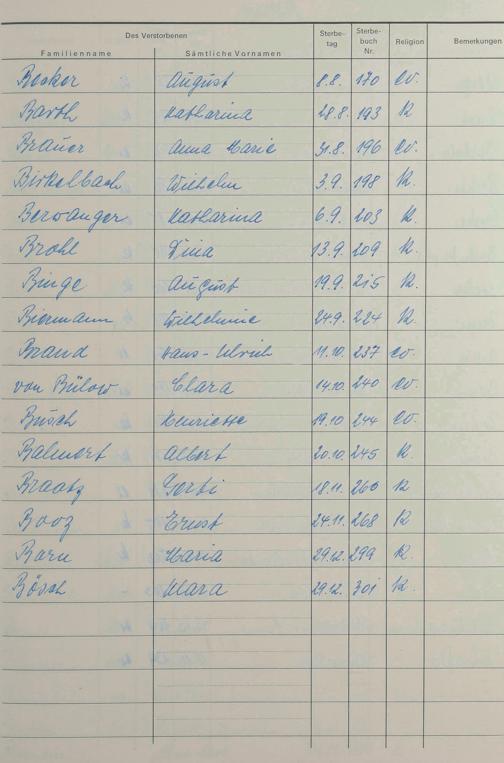 Des Verstorbenen
Familienname Sämtliche Vornamen Sterbe-tag Sterbe-buch Nr. Religion Bemerkungen
Becker August 8.8. 170 ev.
Barth Katharina 28.8. 193 K.
Bräuer Anna Marie 31.8. 196 ev.
Birkelbach Wilhelm 3.9. 198 K.
Berwanger Katharina 6.9. 203 K.
Brohl Dina 13.9. 209 K.
Binge August 19.9. 215 K.
Biermann Wilhelmine 24.9. 224 K.
Brand Hans-Ulrich 11.10. 237 ev.
von Bülow Clara 14.10. 240 ev.
Büsch Henriette 19.10 244 ev.
Balmort Albert 20.10. 245 K.
Braatz Gerti 18.11. 260 K
Booz Ernst 24.11. 268 K
Born Maria 29.12. 299 K.
Bösch Klara 29.12. 301 K.